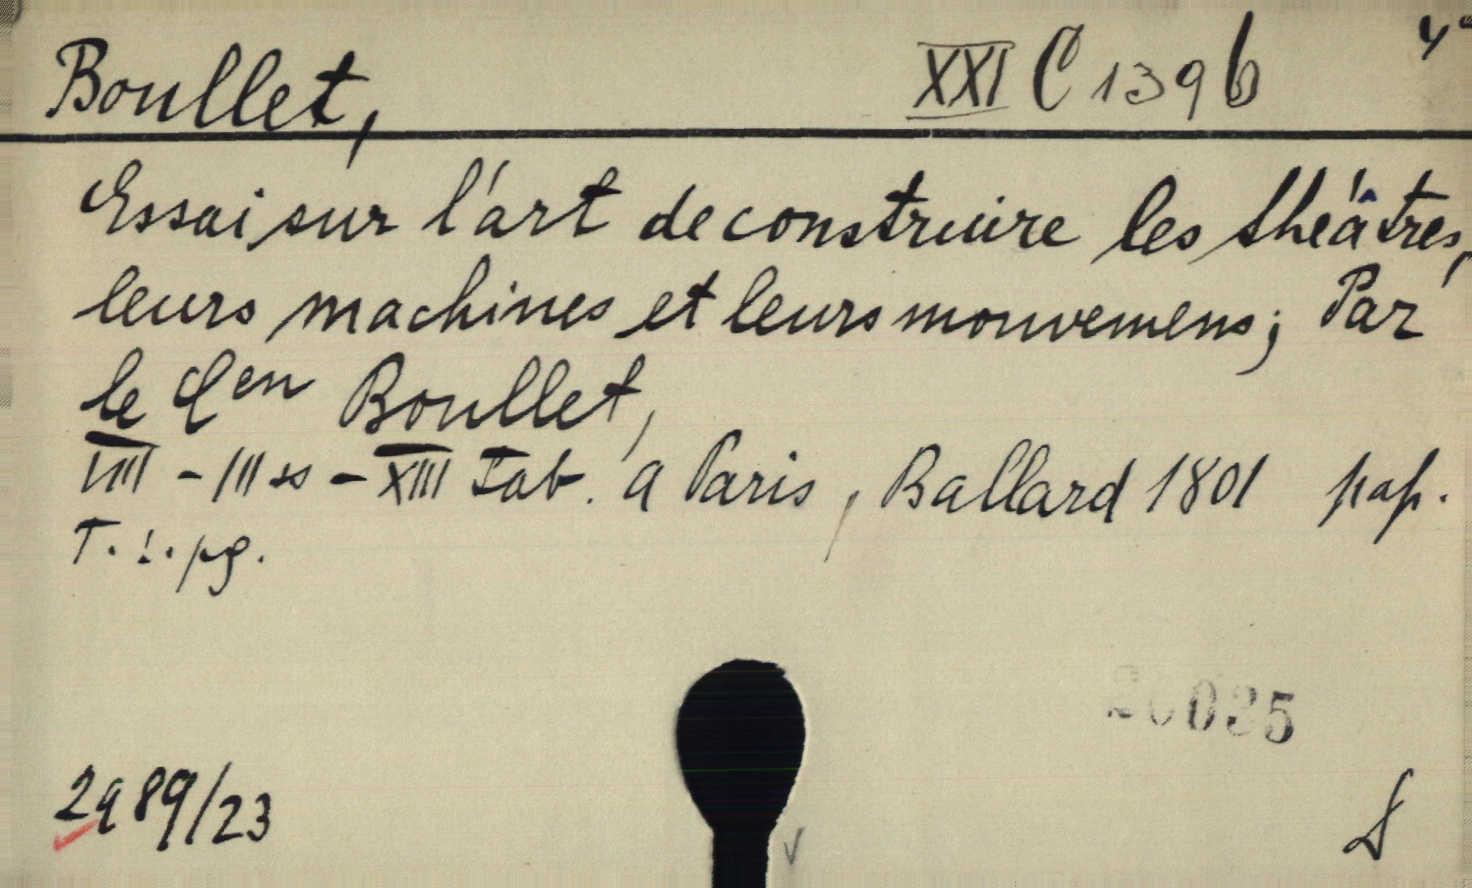 Boullet, XXI C 139 b 4°
Essai sur l'art de construire les théâtres,
leurs machines et leurs mouvemens; Par
le Cen Boullet,
VIII - III ss - XIII Tab. a Paris, Ballard 1801 pap.
T. !. pg.
20035
2989/23